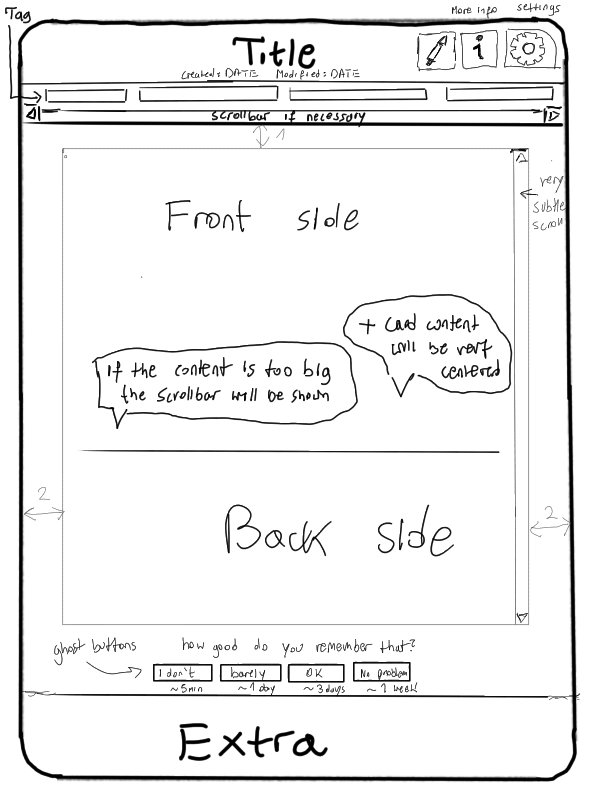 Tag
More info settings
Title
Created: DATE Modified: DATE
scrollbar if necessary
1
very
subtle
scroll
Front side
+ card content
will be vert
centered
if the content is too big
the scrollbar will be shown
2
2
Back side
ghost buttons
how good do you remember that?
I don't barely OK No problem
~5min ~1 day ~3 days ~1 week
Extra